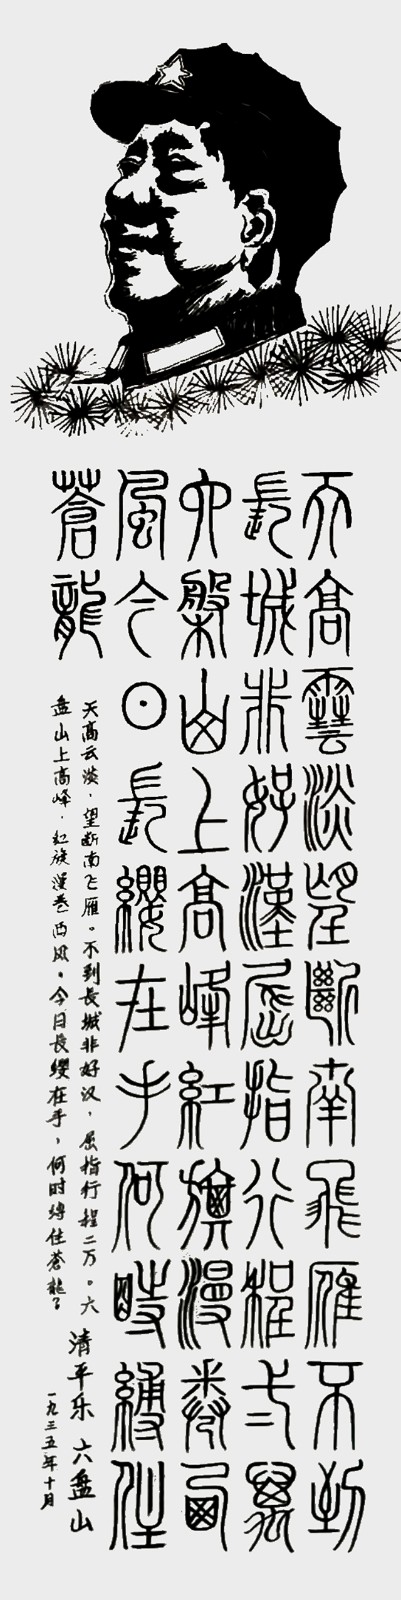 天高雲淡望斷南飛雁不到
長城非好漢屈指行程弍萬
六槃山上高峰紅旗漫卷西
風今日長纓在手何時縛住
蒼龍
天高云淡，望断南飞雁。不到長城非好汉，屈指行程二万。六
盘山上高峰，红旗漫卷西风。今日長缨在手，何时缚住苍龍？
清平乐 六盘山
一九三五年十月